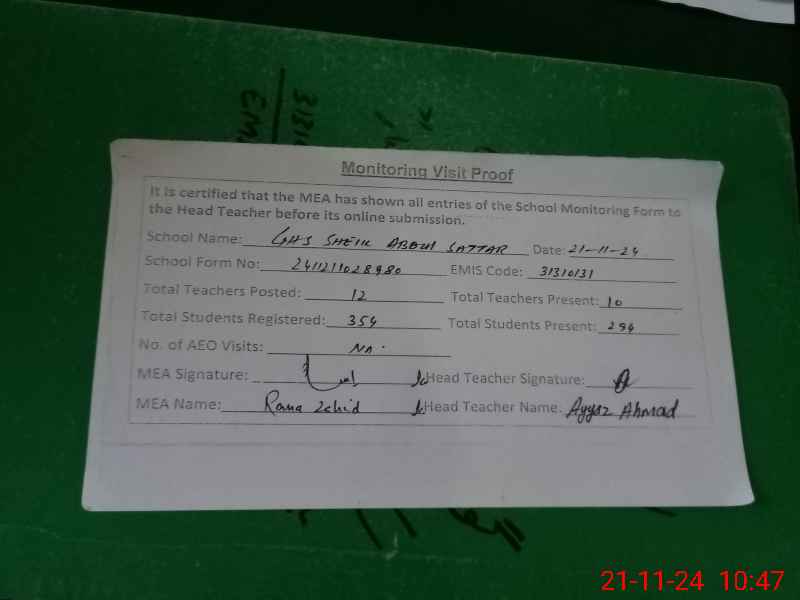 Monitoring Visit Proof
It is certified that the MEA has shown all entries of the School Monitoring Form to
the Head Teacher before its online submission.
School Name: GHS SHEIK ABDUL SATTAR Date: 21-11-24
School Form No: 2411211028980 EMIS Code: 31310131
Total Teachers Posted: 12 Total Teachers Present: 10
Total Students Registered: 354 Total Students Present: 294
No. of AEO Visits: NA.
MEA Signature: Head Teacher Signature:
MEA Name: Rana Zahid Head Teacher Name: Ayyaz Ahmad
21-11-24 10:47